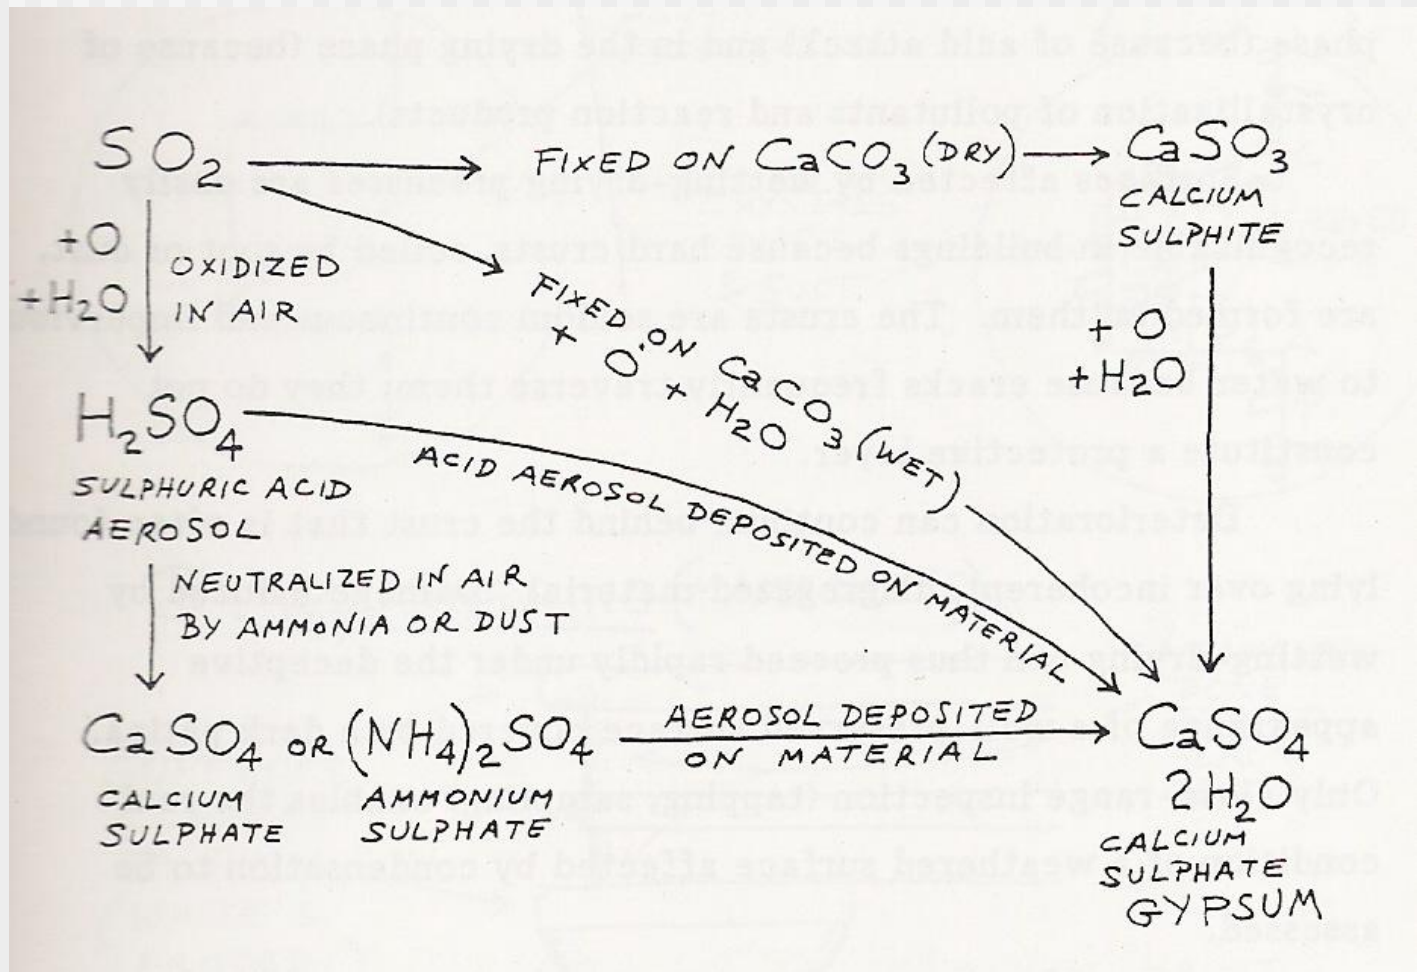 SO2
FIXED ON CaCO3 (DRY)
CaSO3
CALCIUM
SULPHITE
+O
+H2O
OXIDIZED
IN AIR
FIXED ON CaCO3 (WET)
+ O + H2O
+ O
+H2O
H2SO4
SULPHURIC ACID
AEROSOL
ACID AEROSOL DEPOSITED ON MATERIAL
NEUTRALIZED IN AIR
BY AMMONIA OR DUST
CaSO4 OR (NH4)2SO4
CALCIUM
SULPHATE
AMMONIUM
SULPHATE
AEROSOL DEPOSITED
ON MATERIAL
CaSO4
2H2O
CALCIUM
SULPHATE
GYPSUM